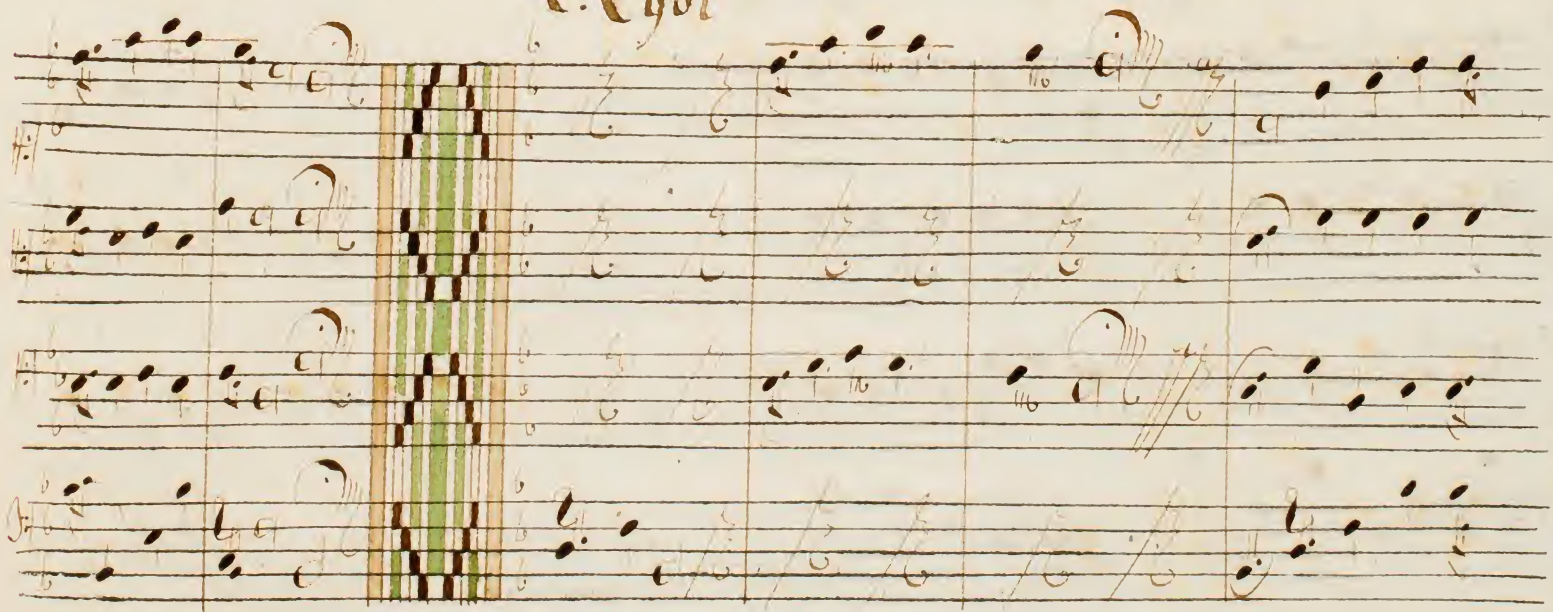 C. Chor